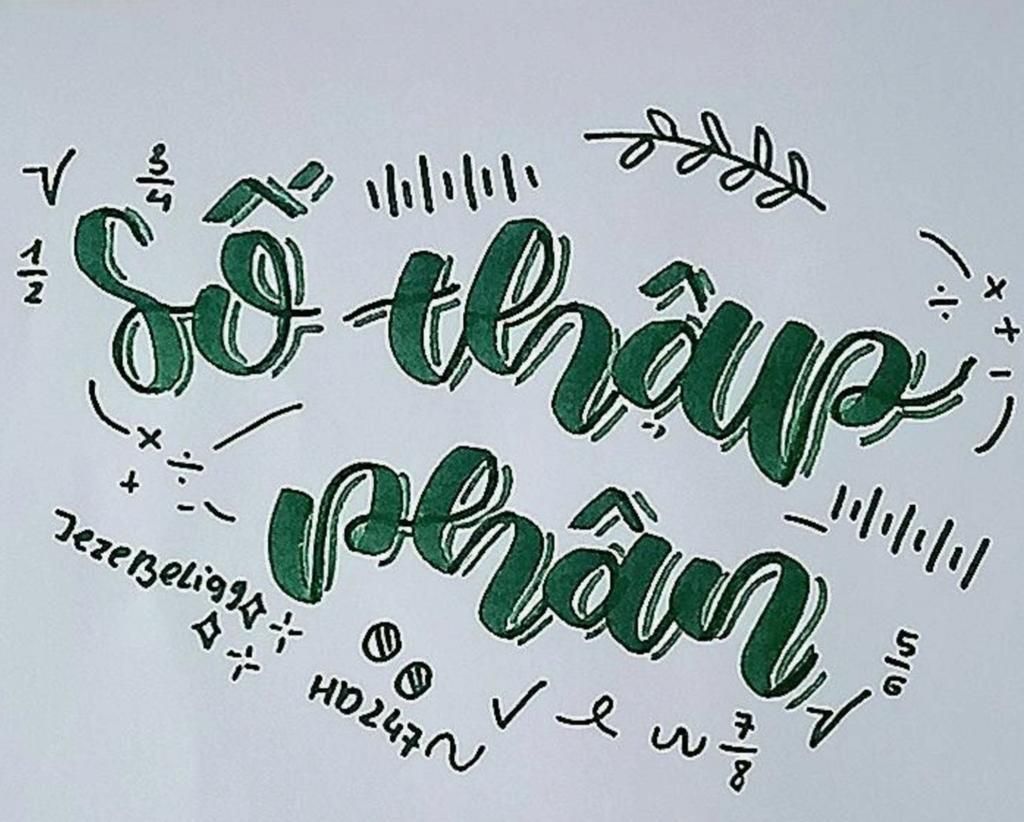 3/4
1/2
Số thập
÷ ×
+
-
× ÷
+ -
phân
JezeBeligg
HD247
5/6
7/8